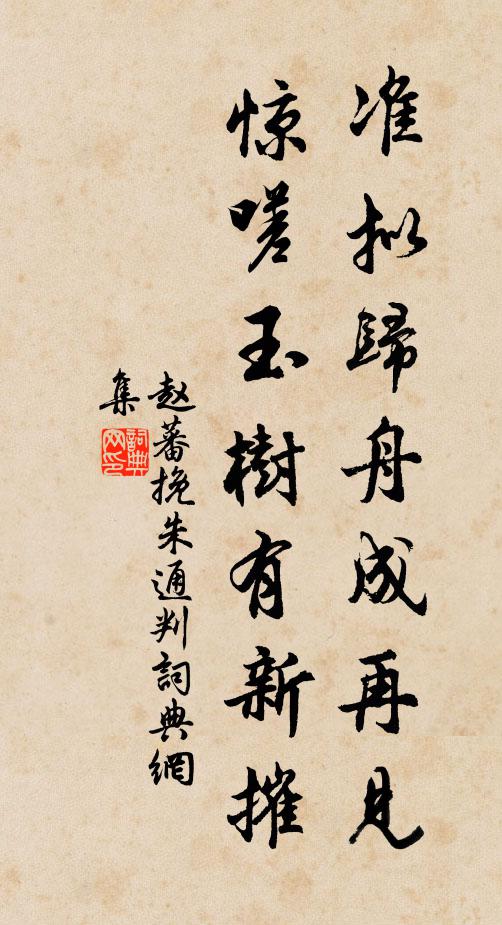 准拟歸舟成再見
惊嗟玉樹有新摧
赵蕃挽朱通判詞典網
集
詞典
网印